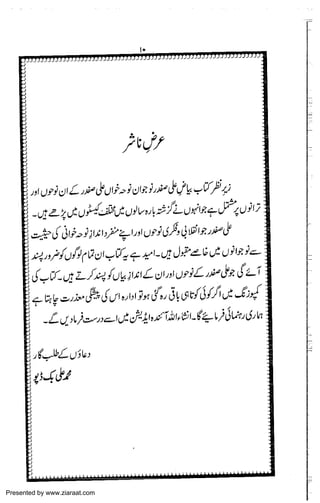 ۱۰
عرضِ ناشر
زیرِ نظر کتاب بیاضِ علی صفدر نوجوان نوحہ خواں علی صفدر کے ان نوحوں اور
ترانوں پر مشتمل ہے جو انہوں نے گزشتہ بارہ سالوں میں مختلف کیسٹوں میں پڑھے ہیں۔
علی صفدر جو انقلابی و فکری نوحوں اور اپنے منفرد انداز نوحہ خوانی کی حیثیت
سے نوجوانوں میں خاصے مقبول ہیں۔ امید ہے یہ کتاب ان تمام لوگوں کو ضرور پسند
آئے گی جو علی صفدر کے نوحوں اور ان کے اندازِ بیاں کو پسند کرتے ہیں۔ کتاب کی
کمپوزنگ میں اگر کوئی کوتاہی باقی رہ گئی ہو تو ادارہ اس کی پیشگی معذرت چاہتا ہے
ہماری رہنمائی فرمائیے گا۔ انشاءاللہ آئندہ ایڈیشن میں اسے درست فرما دیں گے۔
دعاؤں کے طلب گار
علی بک ڈپو
Presented by www.ziaraat.com